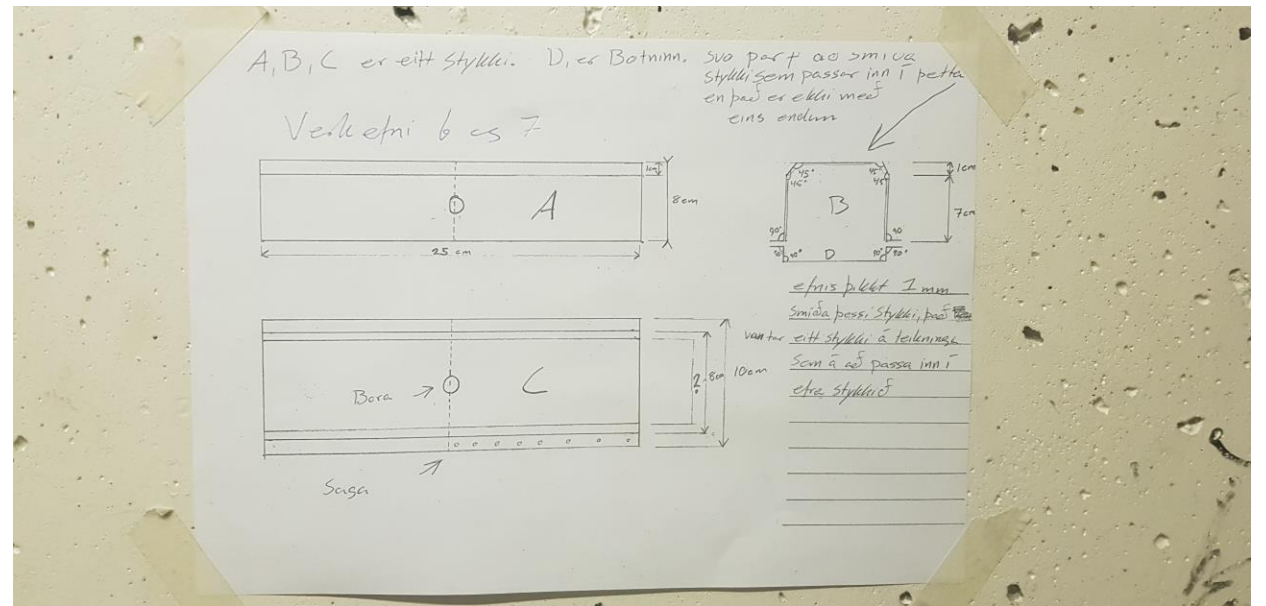 A, B, C er eitt stykki. D, er Botninn. svo þarf að smíða
stykki sem passar inn í þetta
en það er ekki með
eins endum
Verkefni 6 og 7
1cm
A
8cm
25 cm
45° 45°
45° 45°
1cm
B
7cm
90° 90
90° 90° D 90° 90°
Bora
C
2.
8cm
10cm
Saga
efnis þikkt 1 mm
smíða þessi stykki, það
vantar eitt stykki á teikninga
sem á að passa inn í
efra stykkið